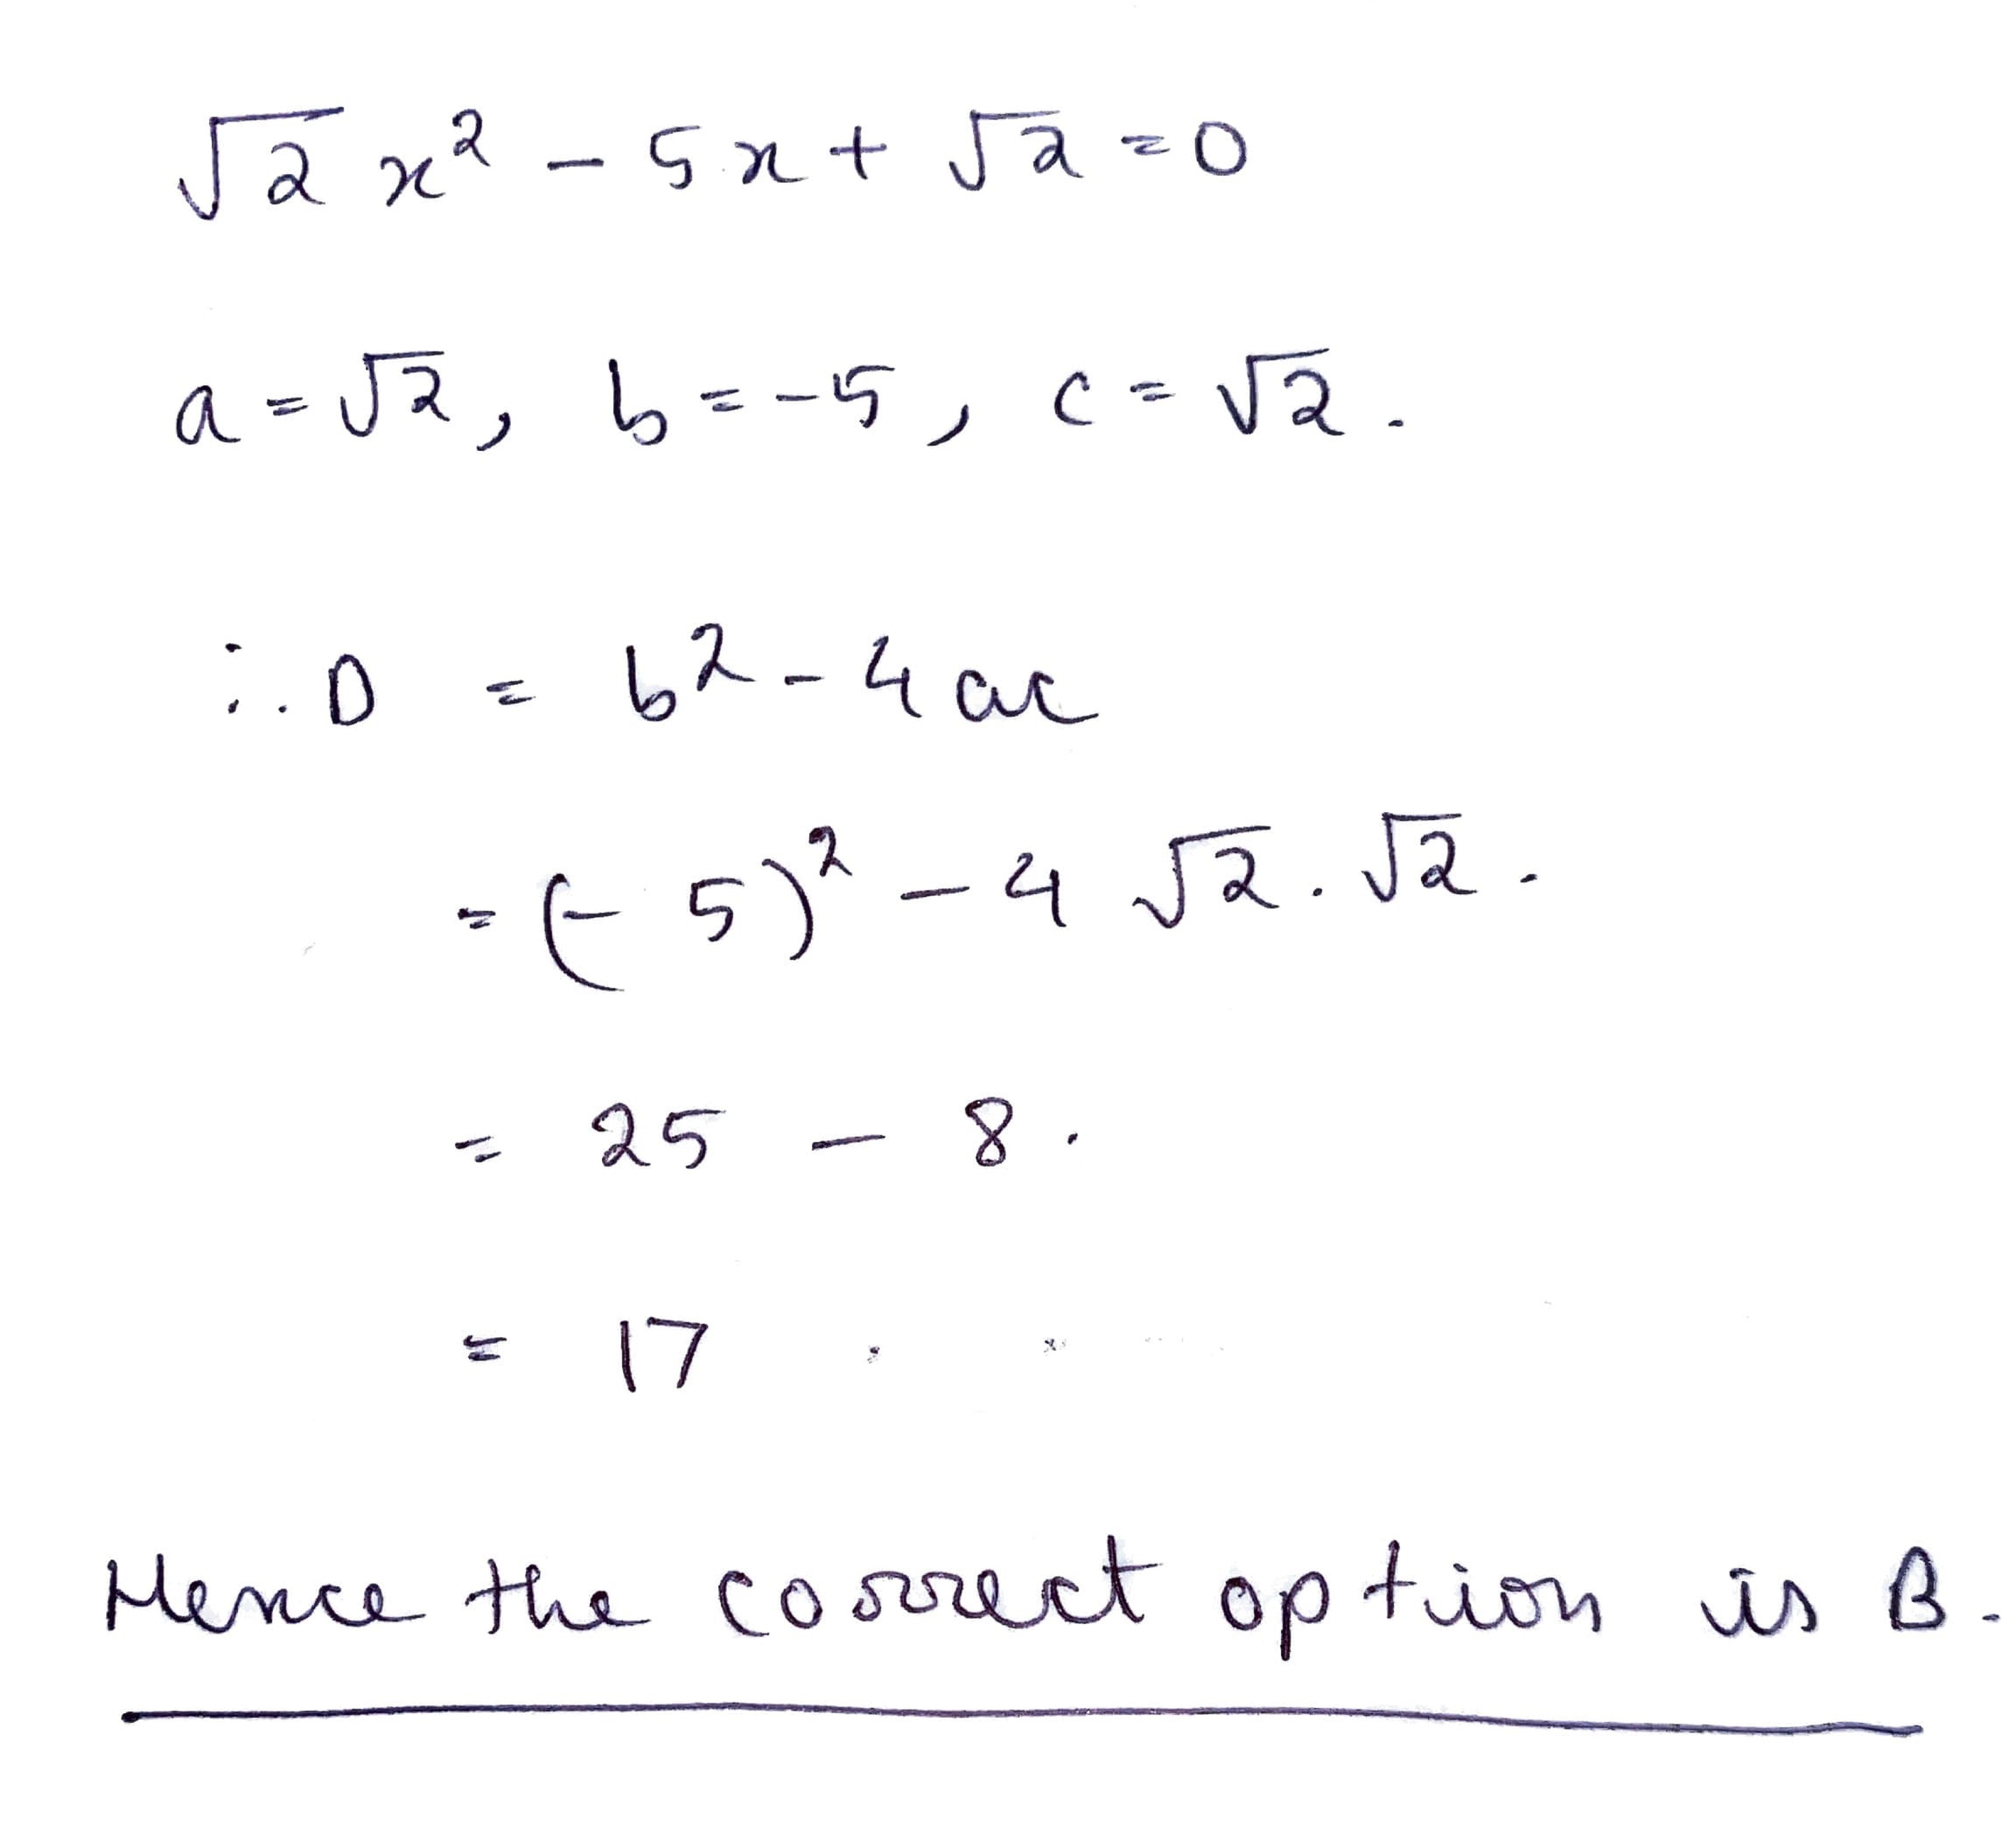 √2 x² - 5x + √2 = 0
a = √2, b = -5, c = √2.
∴ D = b² - 4ac
= (-5)² - 4 √2 . √2 .
= 25 - 8 .
= 17
Hence the correct option is B.